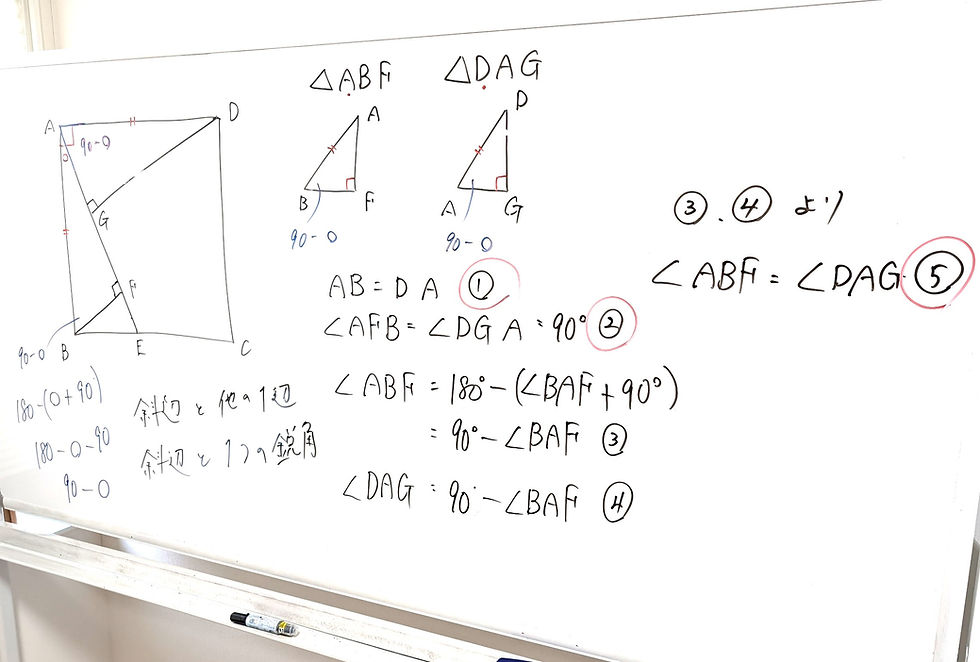 △ABF
△DAG
A
D
90-○
○
G
F
90-○
B
E
C
180-(○+90°)
180-○-90
90-○
斜辺と他の1辺
斜辺と1つの鋭角
A
B
F
90-○
D
A
G
90-○
AB=DA ①
∠AFB=∠DGA=90° ②
∠ABF=180°-(∠BAF+90°)
=90°-∠BAF ③
∠DAG=90°-∠BAF ④
③、④より
∠ABF=∠DAG ⑤